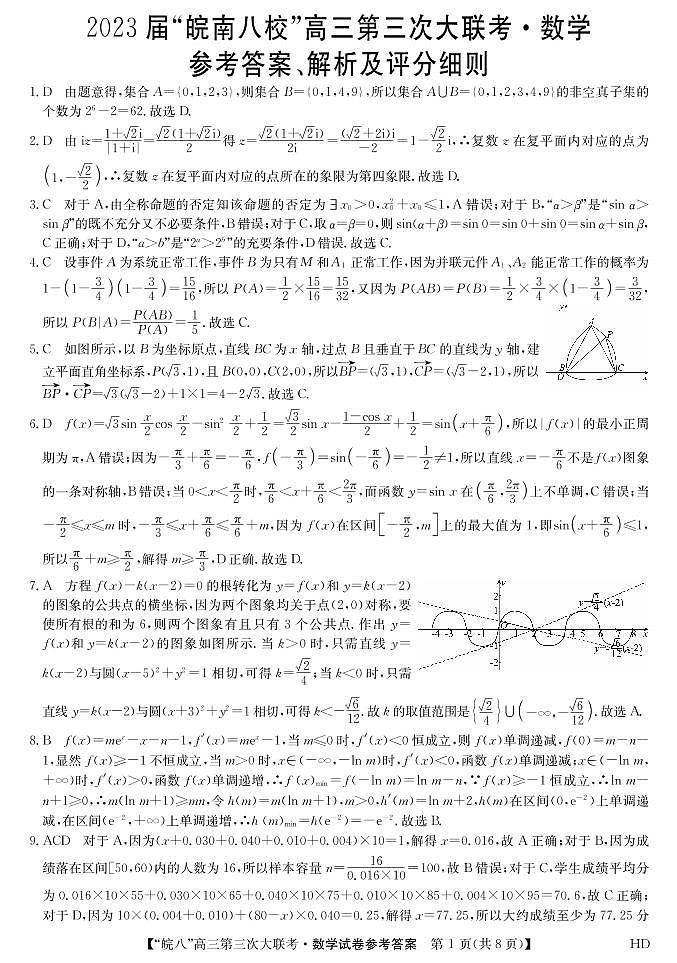 2023 届“皖南八校”高三第三次大联考·数学
参考答案、解析及评分细则
1. D 由题意得,集合 A={0,1,2,3},则集合 B={0,1,4,9},所以集合 A∪B={0,1,2,3,4,9}的非空真子集的
个数为 2⁶−2=62. 故选 D.
2. D 由 iz=(1+√2i)/|1+i|=√2(1+√2i)/2 得 z=√2(1+√2i)/2i=(√2+2i)i/−2=1−(√2/2)i,∴复数 z 在复平面内对应的点为
(1,−√2/2),∴复数 z 在复平面内对应的点所在的象限为第四象限. 故选 D.
3. C 对于 A,由全称命题的否定知该命题的否定为 ∃x₀>0,x₀²+x₀≤1,A 错误;对于 B,“α>β”是“sin α>
sin β”的既不充分又不必要条件,B 错误;对于 C,取 α=β=0,则 sin(α+β)=sin 0=sin 0+sin 0=sin α+sin β,
C 正确;对于 D,“a>b”是“2ᵃ>2ᵇ”的充要条件,D 错误. 故选 C.
4. C 设事件 A 为系统正常工作,事件 B 为只有 M 和 A₁ 正常工作,因为并联元件 A₁、A₂ 能正常工作的概率为
1−(1−3/4)(1−3/4)=15/16,所以 P(A)=1/2×15/16=15/32,又因为 P(AB)=P(B)=1/2×3/4×(1−3/4)=3/32,
所以 P(B|A)=P(AB)/P(A)=1/5. 故选 C.
5. C 如图所示,以 B 为坐标原点,直线 BC 为 x 轴,过点 B 且垂直于 BC 的直线为 y 轴,建
立平面直角坐标系,P(√3,1),且 B(0,0),C(2,0),所以BP→=(√3,1),CP→=(√3−2,1),所以
BP→·CP→=√3(√3−2)+1×1=4−2√3. 故选 C.
6. D f(x)=√3sin x/2 cos x/2−sin² x/2+1/2=√3/2 sin x−(1−cos x)/2+1/2=sin(x+π/6),所以|f(x)|的最小正周
期为 π,A 错误;因为−π/3+π/6=−π/6,f(−π/3)=sin(−π/6)=−1/2≠1,所以直线 x=−π/6 不是 f(x)图象
的一条对称轴,B 错误;当 0<x<π/2时,π/6<x+π/6<2π/3,而函数 y=sin x 在(π/6,2π/3)上不单调,C 错误;当
−π/2≤x≤m 时,−π/3≤x+π/6≤π/6+m,因为 f(x)在区间[−π/2,m]上的最大值为 1,即sin(x+π/6)≤1,
所以π/6+m≥π/2,解得 m≥π/3,D 正确. 故选 D.
7. A 方程 f(x)−k(x−2)=0 的根转化为 y=f(x)和 y=k(x−2)
的图象的公共点的横坐标,因为两个图象均关于点(2,0)对称,要
使所有根的和为 6,则两个图象有且只有 3 个公共点. 作出 y=
f(x)和 y=k(x−2)的图象如图所示. 当 k>0 时,只需直线 y=
k(x−2)与圆(x−5)²+y²=1 相切,可得 k=√2/4;当 k<0 时,只需
直线 y=k(x−2)与圆(x+3)²+y²=1 相切,可得 k<−√6/12. 故 k 的取值范围是{√2/4}∪(−∞,−√6/12). 故选 A.
8. B f(x)=meˣ−x−n−1,f′(x)=meˣ−1,当 m≤0 时,f′(x)<0 恒成立,则 f(x)单调递减,f(0)=m−n−
1,显然 f(x)≥−1 不恒成立,当 m>0 时,x∈(−∞,−ln m)时,f′(x)<0,函数 f(x)单调递减;x∈(−ln m,
+∞)时,f′(x)>0,函数 f(x)单调递增,∴f(x)min=f(−ln m)=ln m−n,∵f(x)≥−1 恒成立,∴ln m−
n+1≥0,∴m(ln m+1)≥mn,令 h(m)=m(ln m+1),m>0,h′(m)=ln m+2,h(m)在区间(0,e⁻²)上单调递
减,在区间(e⁻²,+∞)上单调递增,∴h(m)min=h(e⁻²)=−e⁻². 故选 B.
9. ACD 对于 A,因为(x+0.030+0.040+0.010+0.004)×10=1,解得 x=0.016,故 A 正确;对于 B,因为成
绩落在区间[50,60)内的人数为 16,所以样本容量 n=16/(0.016×10)=100,故 B 错误;对于 C,学生成绩平均分
为 0.016×10×55+0.030×10×65+0.040×10×75+0.010×10×85+0.004×10×95=70.6,故 C 正确;
对于 D,因为 10×(0.004+0.010)+(80−x)×0.040=0.25,解得 x=77.25,所以大约成绩至少为 77.25 分
【“皖八”高三第三次大联考·数学试卷参考答案 第 1 页(共 8 页)】 HD